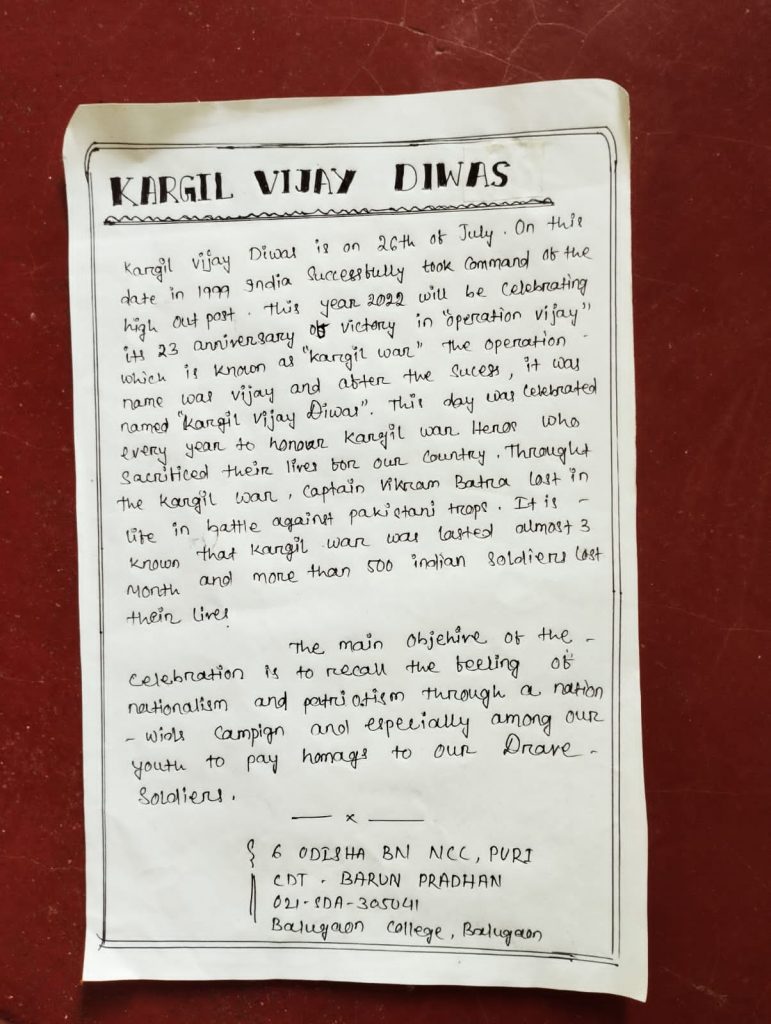 KARGIL VIJAY DIWAS
Kargil vijay Diwas is on 26th of July. On this
date in 1999 India Successfully took command of the
high out post. This year 2022 will be celebrating
its 23 anniversary of victory in "operation vijay"
which is known as "kargil war" the operation -
name was vijay and after the sucess, it was
named "Kargil Vijay Diwas". This day was celebrated
every year to honour Kargil war Heros who
sacrificed their lives for our country. Throught
the Kargil war, captain Vikram Batra lost in
life in battle against pakistani trops. It is -
known that Kargil war was lasted almost 3
Month and more than 500 indian Soldiers lost
their lives
The main Objehive of the -
celebration is to recall the feeling of
nationalism and patriotism through a nation
- wids campign and especially among our
youth to pay homags to our Drave -
Soldiers.
— x —
6 ODISHA BN NCC, PURI
CDT. BARUN PRADHAN
021-SDA-305041
Balugaon College, Balugaon